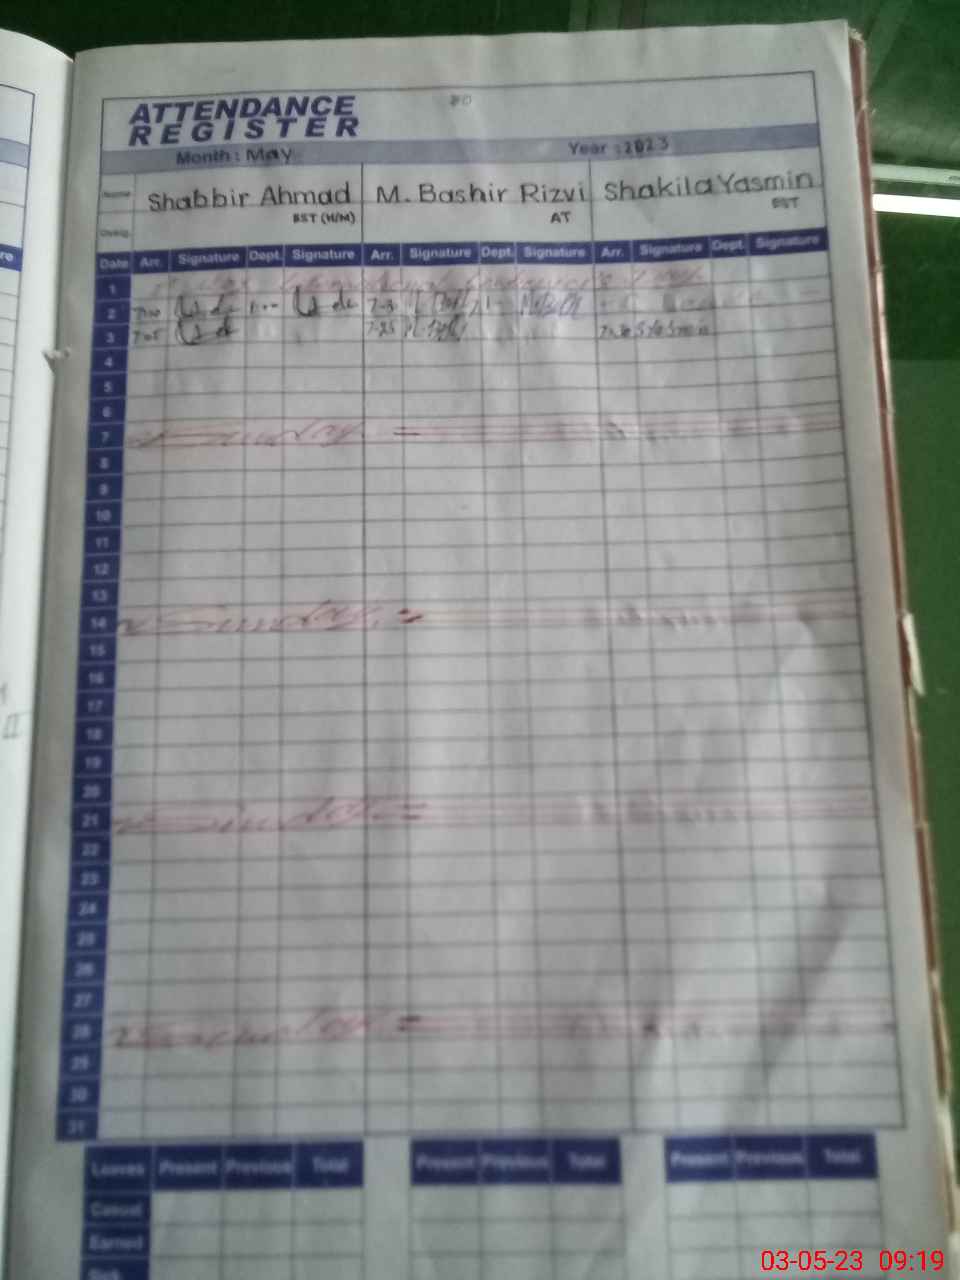 ATTENDANCE
REGISTER
Month: May Year: 2023
Name Shabbir Ahmad M. Bashir Rizvi Shakila Yasmin
Desig. BST (H/M) AT EST
Date Arr. Signature Dept. Signature Arr. Signature Dept. Signature Arr. Signature Dept. Signature
1
2 7:00
3 7:05 7-25
4
5
6
7 Sunday
8
9
10
11
12
13
14 Sunday
15
16
17
18
19
20
21 Sunday
22
23
24
25
26
27
28 Sunday
29
30
31
Leaves Present Previous Total Present Previous Total Present Previous Total
Casual
Earned
Sick
03-05-23 09:19